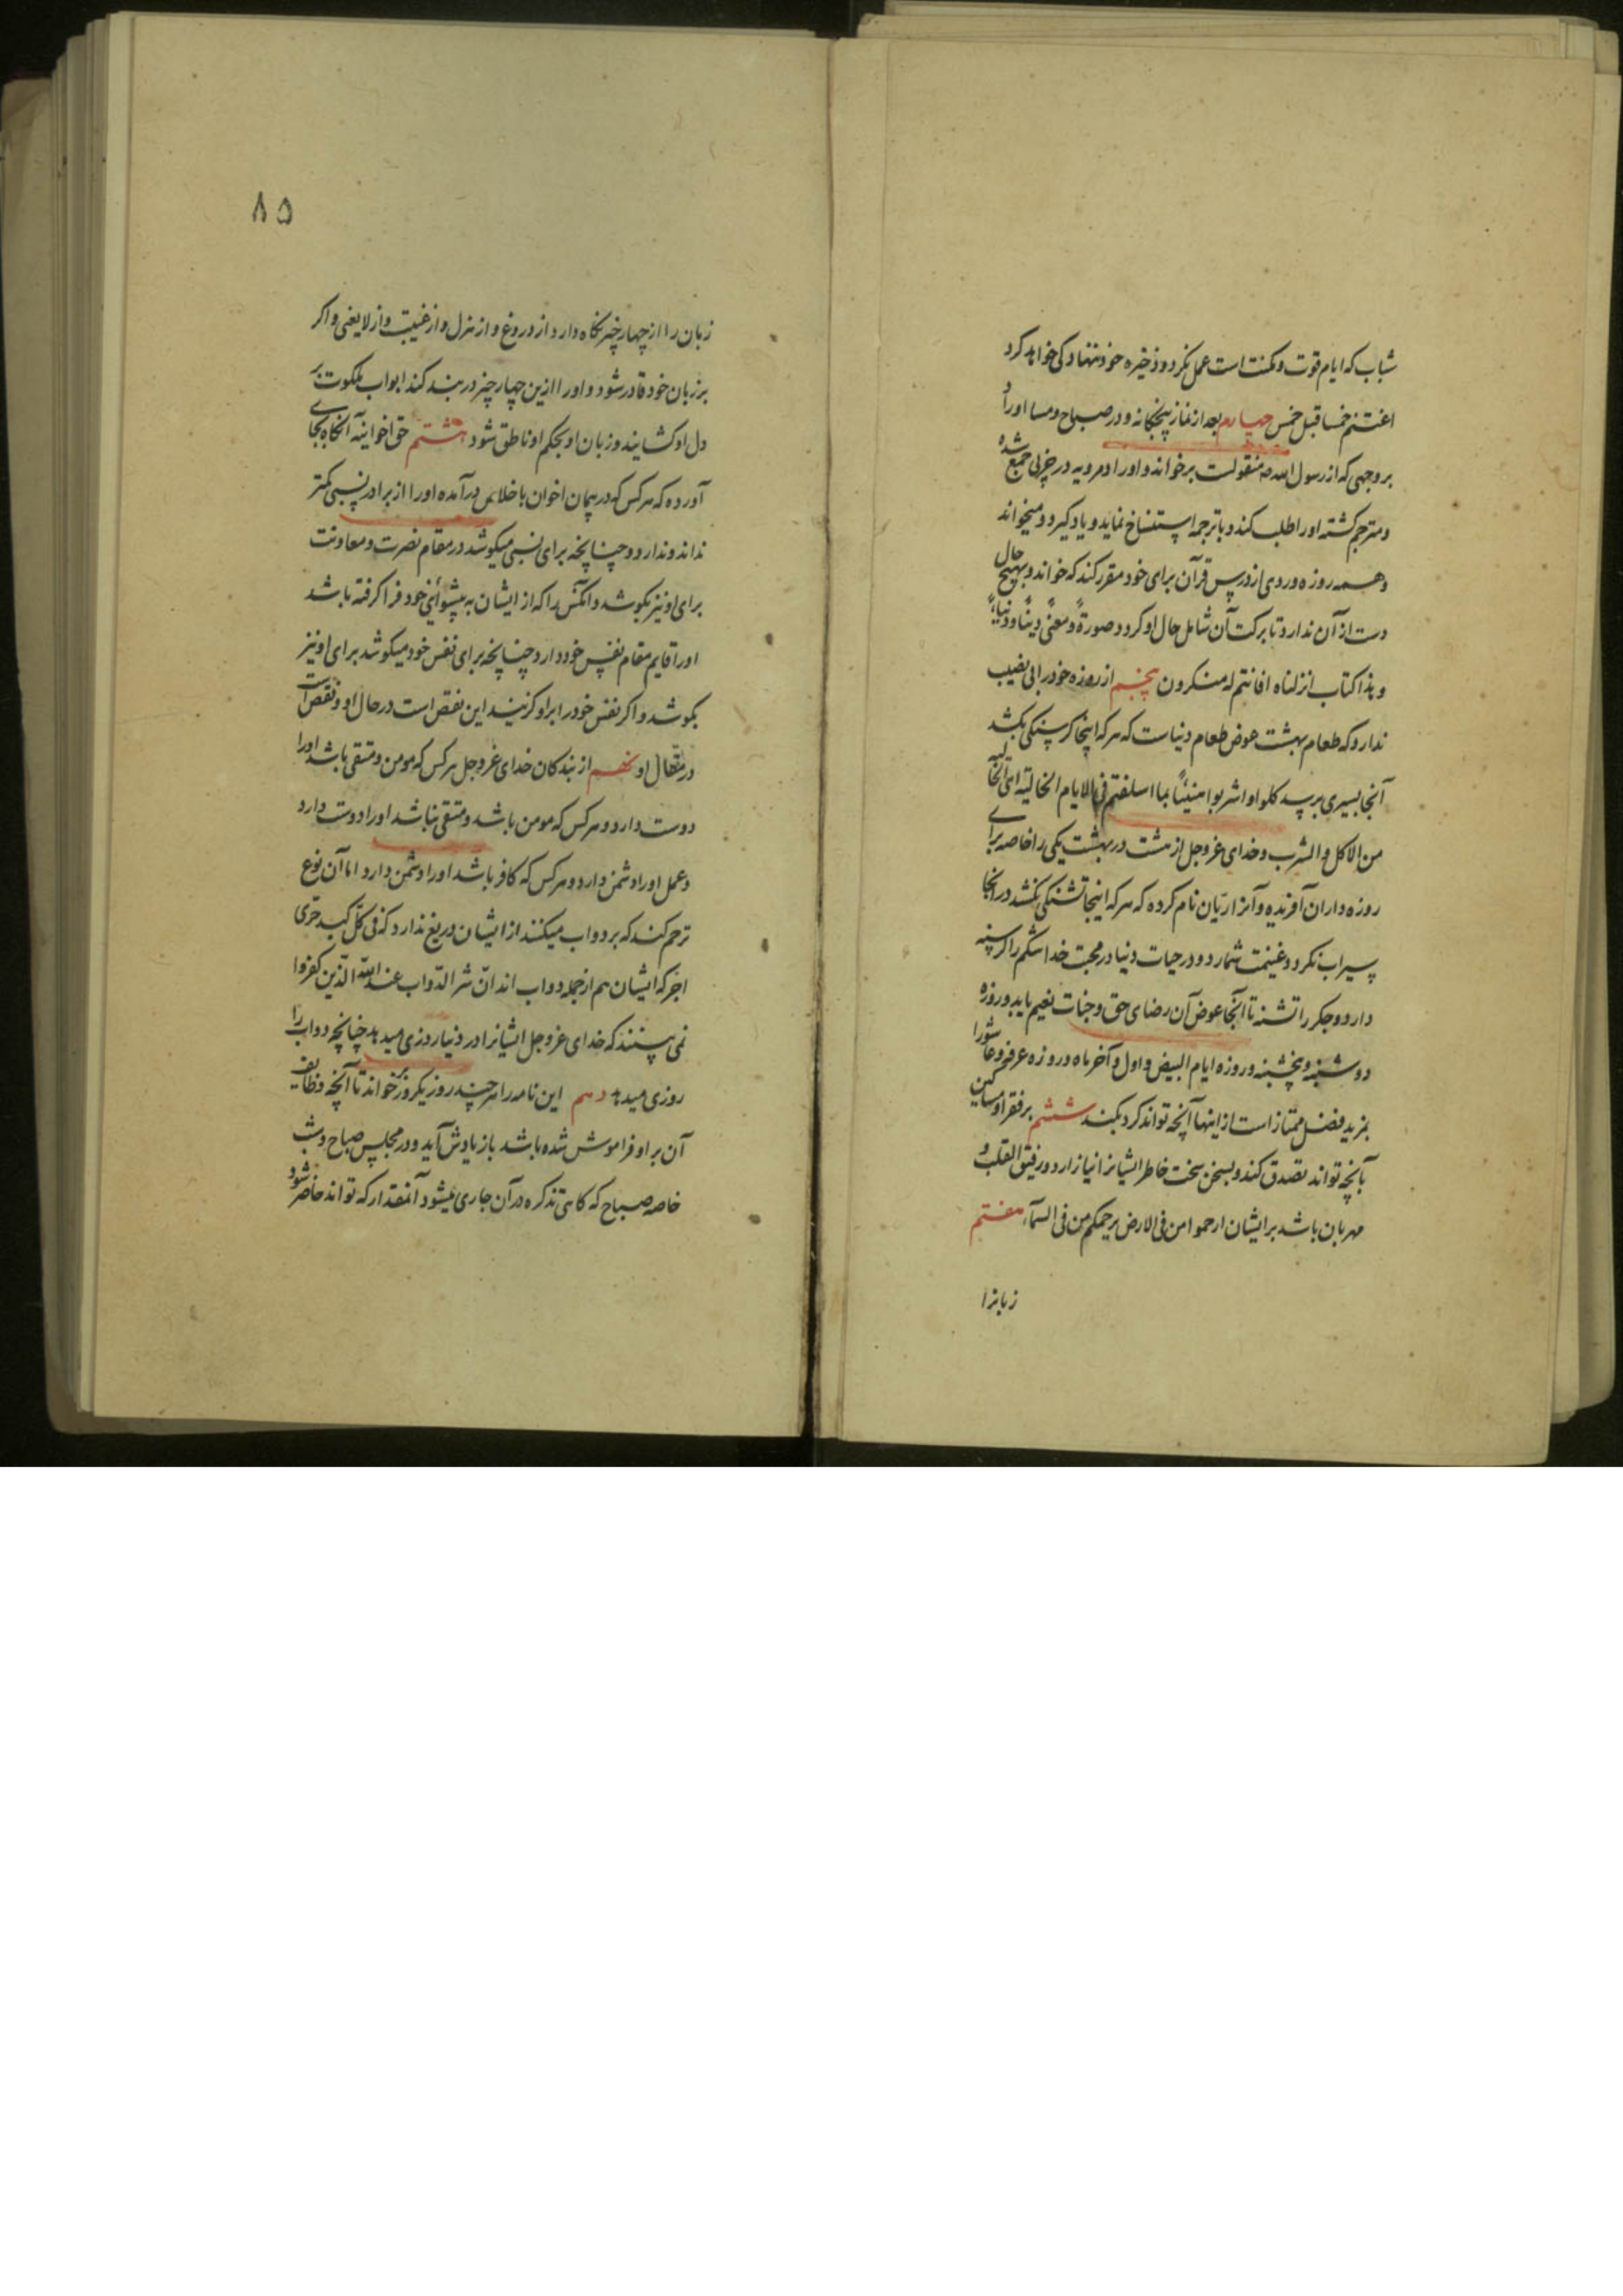 شباب که ایام قوت و مکنت است عمل نکرد و ذخیره خود ننهاد کی خواهد کرد
اغتنم خمسا قبل خمس چهارم بعد از نماز پنجگانه و در صباح و مسا اوراد
بر وجهی که از رسول الله صه منقولست برخواند و اوراد مرویه در جزیی جمع شده
و مترجم کشته اورا طلب کند و با ترجمه استنساخ نماید و یاد کیرد و میخواند
و همه روزه وردی از درس قرآن برای خود مقرر کند که خواند و بهیچ حال
دست از آن ندارد تا برکت آن شامل حال او کردد صورةً و معنًی دینًا و دنیاءً
و هذا کتاب انزلناه افانتم له منکرون پنجم از روزه خود را بی نصیب
ندارد که طعام بهشت عوض طعام دنیاست که هر که اینجا کرسنکی بکشد
آنجا بسیری برسد کلوا و اشربوا هنیئاً بما اسلفتم فی الایام الخالیة ای الخالیه
من الاکل و الشرب و خدای عزوجل از هشت در بهشت یکی را خاصه برای
روزه داران آفریده و آنرا ریّان نام کرده که هر که اینجا تشنکی نکشد در آنجا
سیراب نکردد غنیمت شمارد و در حیات دنیا در محبت خدا شکم را کرسنه
دارد و جکر را تشنه تا آنجا عوض آن رضای حق و جنات نعیم یابد و روزه
دوشنبه و پنجشنبه و روزه ایام البیض و اول و آخر ماه و روزه عرفه و عاشورا
بمزید فضل ممتاز است از اینها آنچه تواند کرد بکند ششم بر فقرا و مساکین
بآنچه تواند تصدق کند و بسخن سخت خاطر ایشانرا نیازارد و رفیق القلب و
مهربان باشد بر ایشان ارحموا من فی الارض یرحمکم من فی السمآء هفتم
زبانرا
۸۵
زبان را از چهار چیز نکاه دارد از دروغ و از هزل و از غیبت و از لایعنی و اکر
بر زبان خود قادر شود و او را ازین چهار چیز در بند کند ابواب ملکوت بر
دل او کشایند و زبان او بحکم او ناطق شود هشتم حق اخوانیه آنکاه بجای
آورده که هر کس که در پیمان اخوان باخلاص درآمده او را از برادر نسبی کمتر
نداند و ندارد و چنانچه برای نسبی میکوشد در مقام نصرت و معاونت
برای او نیز بکوشد و آنکس را که از ایشان به پیشوائی خود فرا کرفته باشد
او را قایم مقام نفس خود دارد چنانچه برای نفس خود میکوشد برای او نیز
بکوشد و اکر نفس خود را بر او کزیند این نقص است در حال او و نقص است
در مقال او نهم از بندکان خدای عزوجل هر کس که مومن و متقی باشد او را
دوست دارد و هر کس که مومن باشد و متقی نباشد او را دوست دارد
و عمل او را دشمن دارد و هر کس که کافر باشد او را دشمن دارد اما آن نوع
ترحم کند که بر دواب میکنند از ایشان دریغ ندارد که فی کل کبد حرّی
اجر که ایشان هم از جمله دواب اند انّ شر الدّواب عند اللّه الّذین کفروا
نمی بینند که خدای عزوجل ایشانرا در دنیا روزی میدهد چنانچه دواب را
روزی میدهد دهم این نامه را هر چند روز یکروز برخواند تا آنچه وظایف
آن بر او فراموش شده باشد باز یادش آید و در مجلس صباح و شب
خاصه صباح که کاهی تذکره در آن جاری میشود آنمقدار که تواند حاضر شود